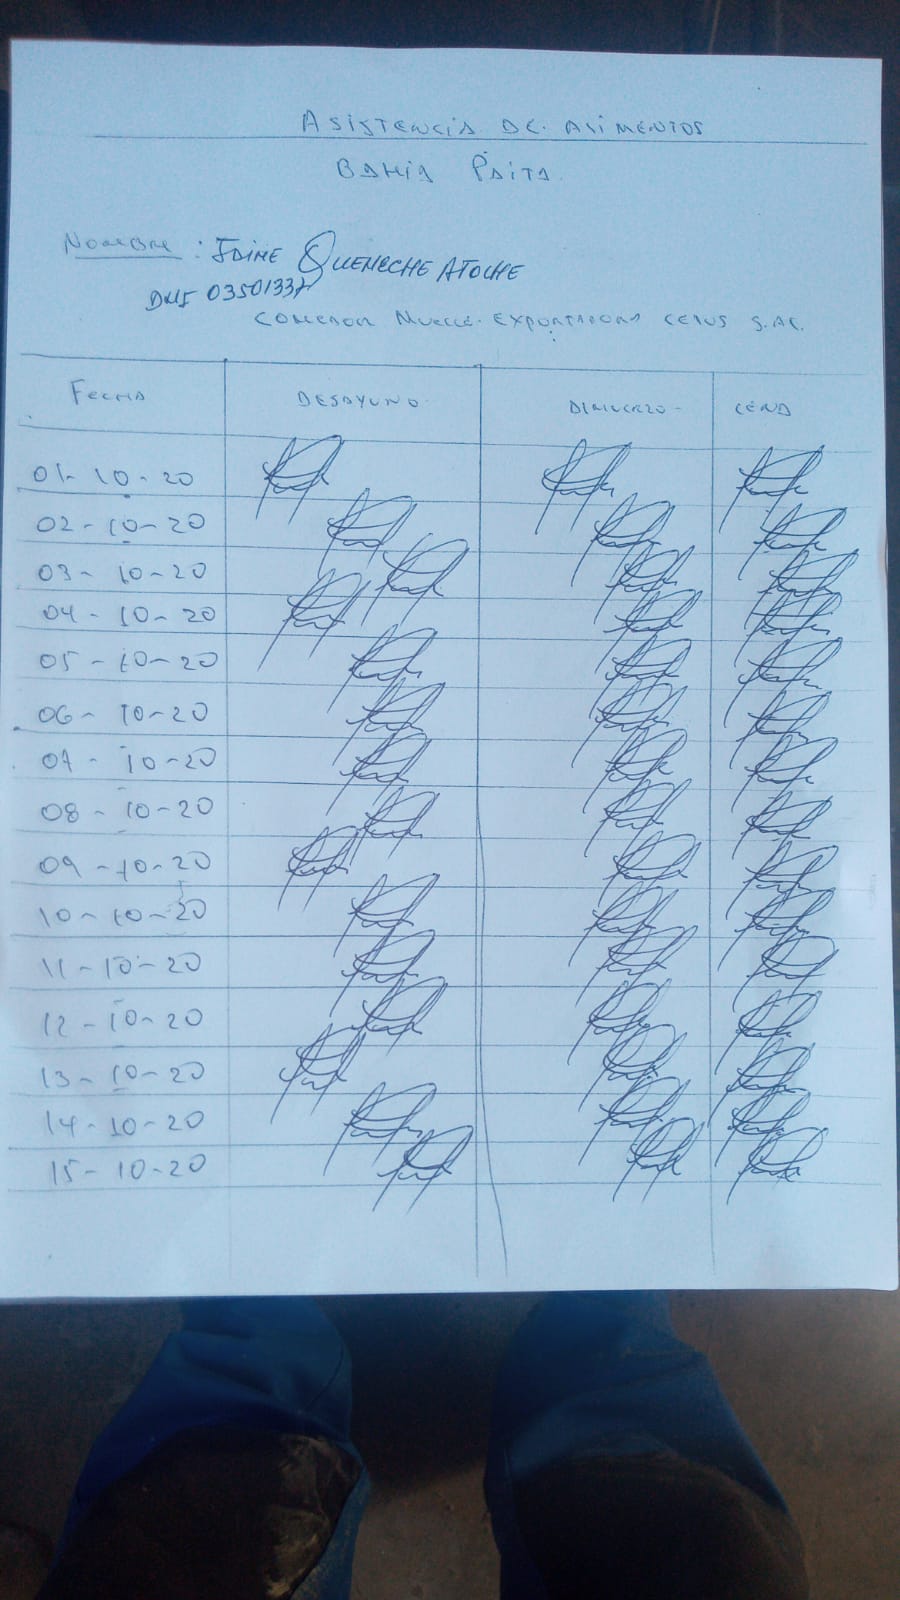 ASISTENCIA DE ALIMENTOS
BAHIA PAITA
NOMBRE : JAIME QUENECHE ATOCHE
DNI 03501337
COMEDOR MUELLE EXPORTADORA CETUS S.AC.
FECHA DESAYUNO ALMUERZO CENA
01-10-20
02-10-20
03-10-20
04-10-20
05-10-20
06-10-20
07-10-20
08-10-20
09-10-20
10-10-20
11-10-20
12-10-20
13-10-20
14-10-20
15-10-20